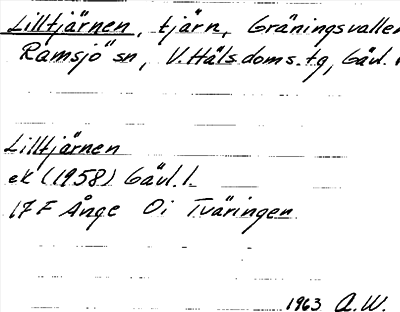 Lilltjärnen, tjärn, Gräningsvallen
Ramsjö sn, V. Hälsdoms. tg, Gävl.
Lilltjärnen
ek (1958) Gävl. l.
17F Ånge Oi Tväringen
1963 A.W.